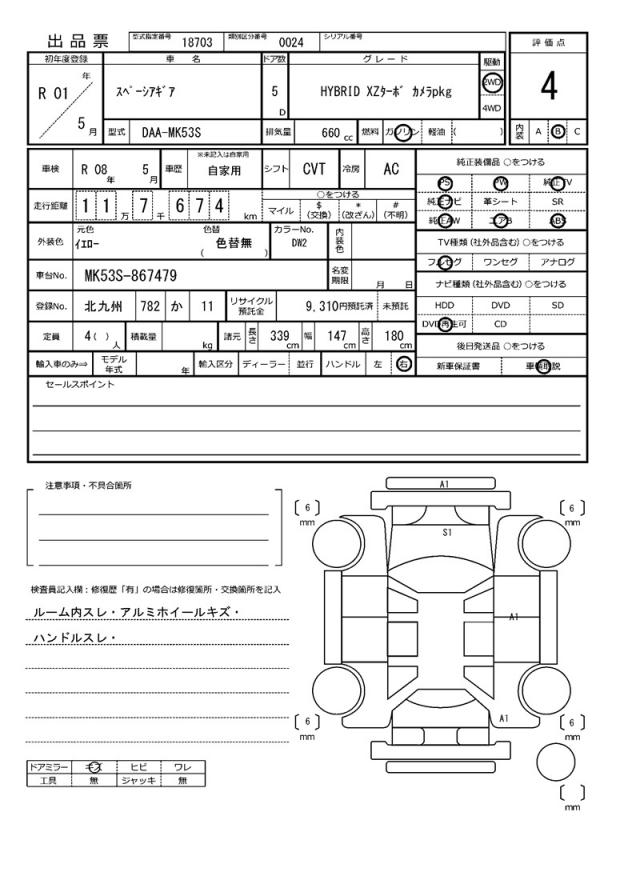 出品票 型式指定番号 18703 類別区分番号 0024 シリアル番号
評価点
初年度登録 車名 ドア数 グレード 駆動
R 01 年 5 月 ｽﾍﾟｰｼｱｷﾞｱ 5 D HYBRID XZﾀｰﾎﾞ ｶﾒﾗpkg 2WD 4WD 4
型式 DAA-MK53S 排気量 660 cc 燃料 ガソリン 軽油 ( ) 内装 A B C
車検 R 08 年 5 月 車歴 ※未記入は自家用 自家用 シフト CVT 冷房 AC
純正装備品 ○をつける
PS PW 純正TV
純正ナビ 革シート SR
純正AW エアB ABS
走行距離 1 1 万 7 千 6 7 4 km ○をつける マイル $ (交換) * (改ざん) # (不明)
TV種類 (社外品含む) ○をつける
フルセグ ワンセグ アナログ
外装色 元色 ｲｴﾛｰ 色替 ( 色替無 ) カラーNo. DW2 内装色
車台No. MK53S-867479 名変期限 月 日
ナビ種類 (社外品含む) ○をつける
HDD DVD SD
DVD再生可 CD
登録No. 北九州 782 か 11 リサイクル預託金 9,310円預託済 未預託
定員 4 ( ) 人 積載量 kg 諸元 長さ 339 cm 幅 147 cm 高さ 180 cm
後日発送品 ○をつける
新車保証書 車輌取説
輸入車のみ⇒ モデル年式 年 輸入区分 ディーラー 並行 ハンドル 左 右
セールスポイント
注意事項・不具合箇所
検査員記入欄：修復歴「有」の場合は修復箇所・交換箇所を記入
ルーム内スレ・アルミホイールキズ・
ハンドルスレ・
ドアミラー キズ ヒビ ワレ
工具 無 ジャッキ 無
A1
6 mm 6 mm
S1
A1
A1
6 mm 6 mm
mm